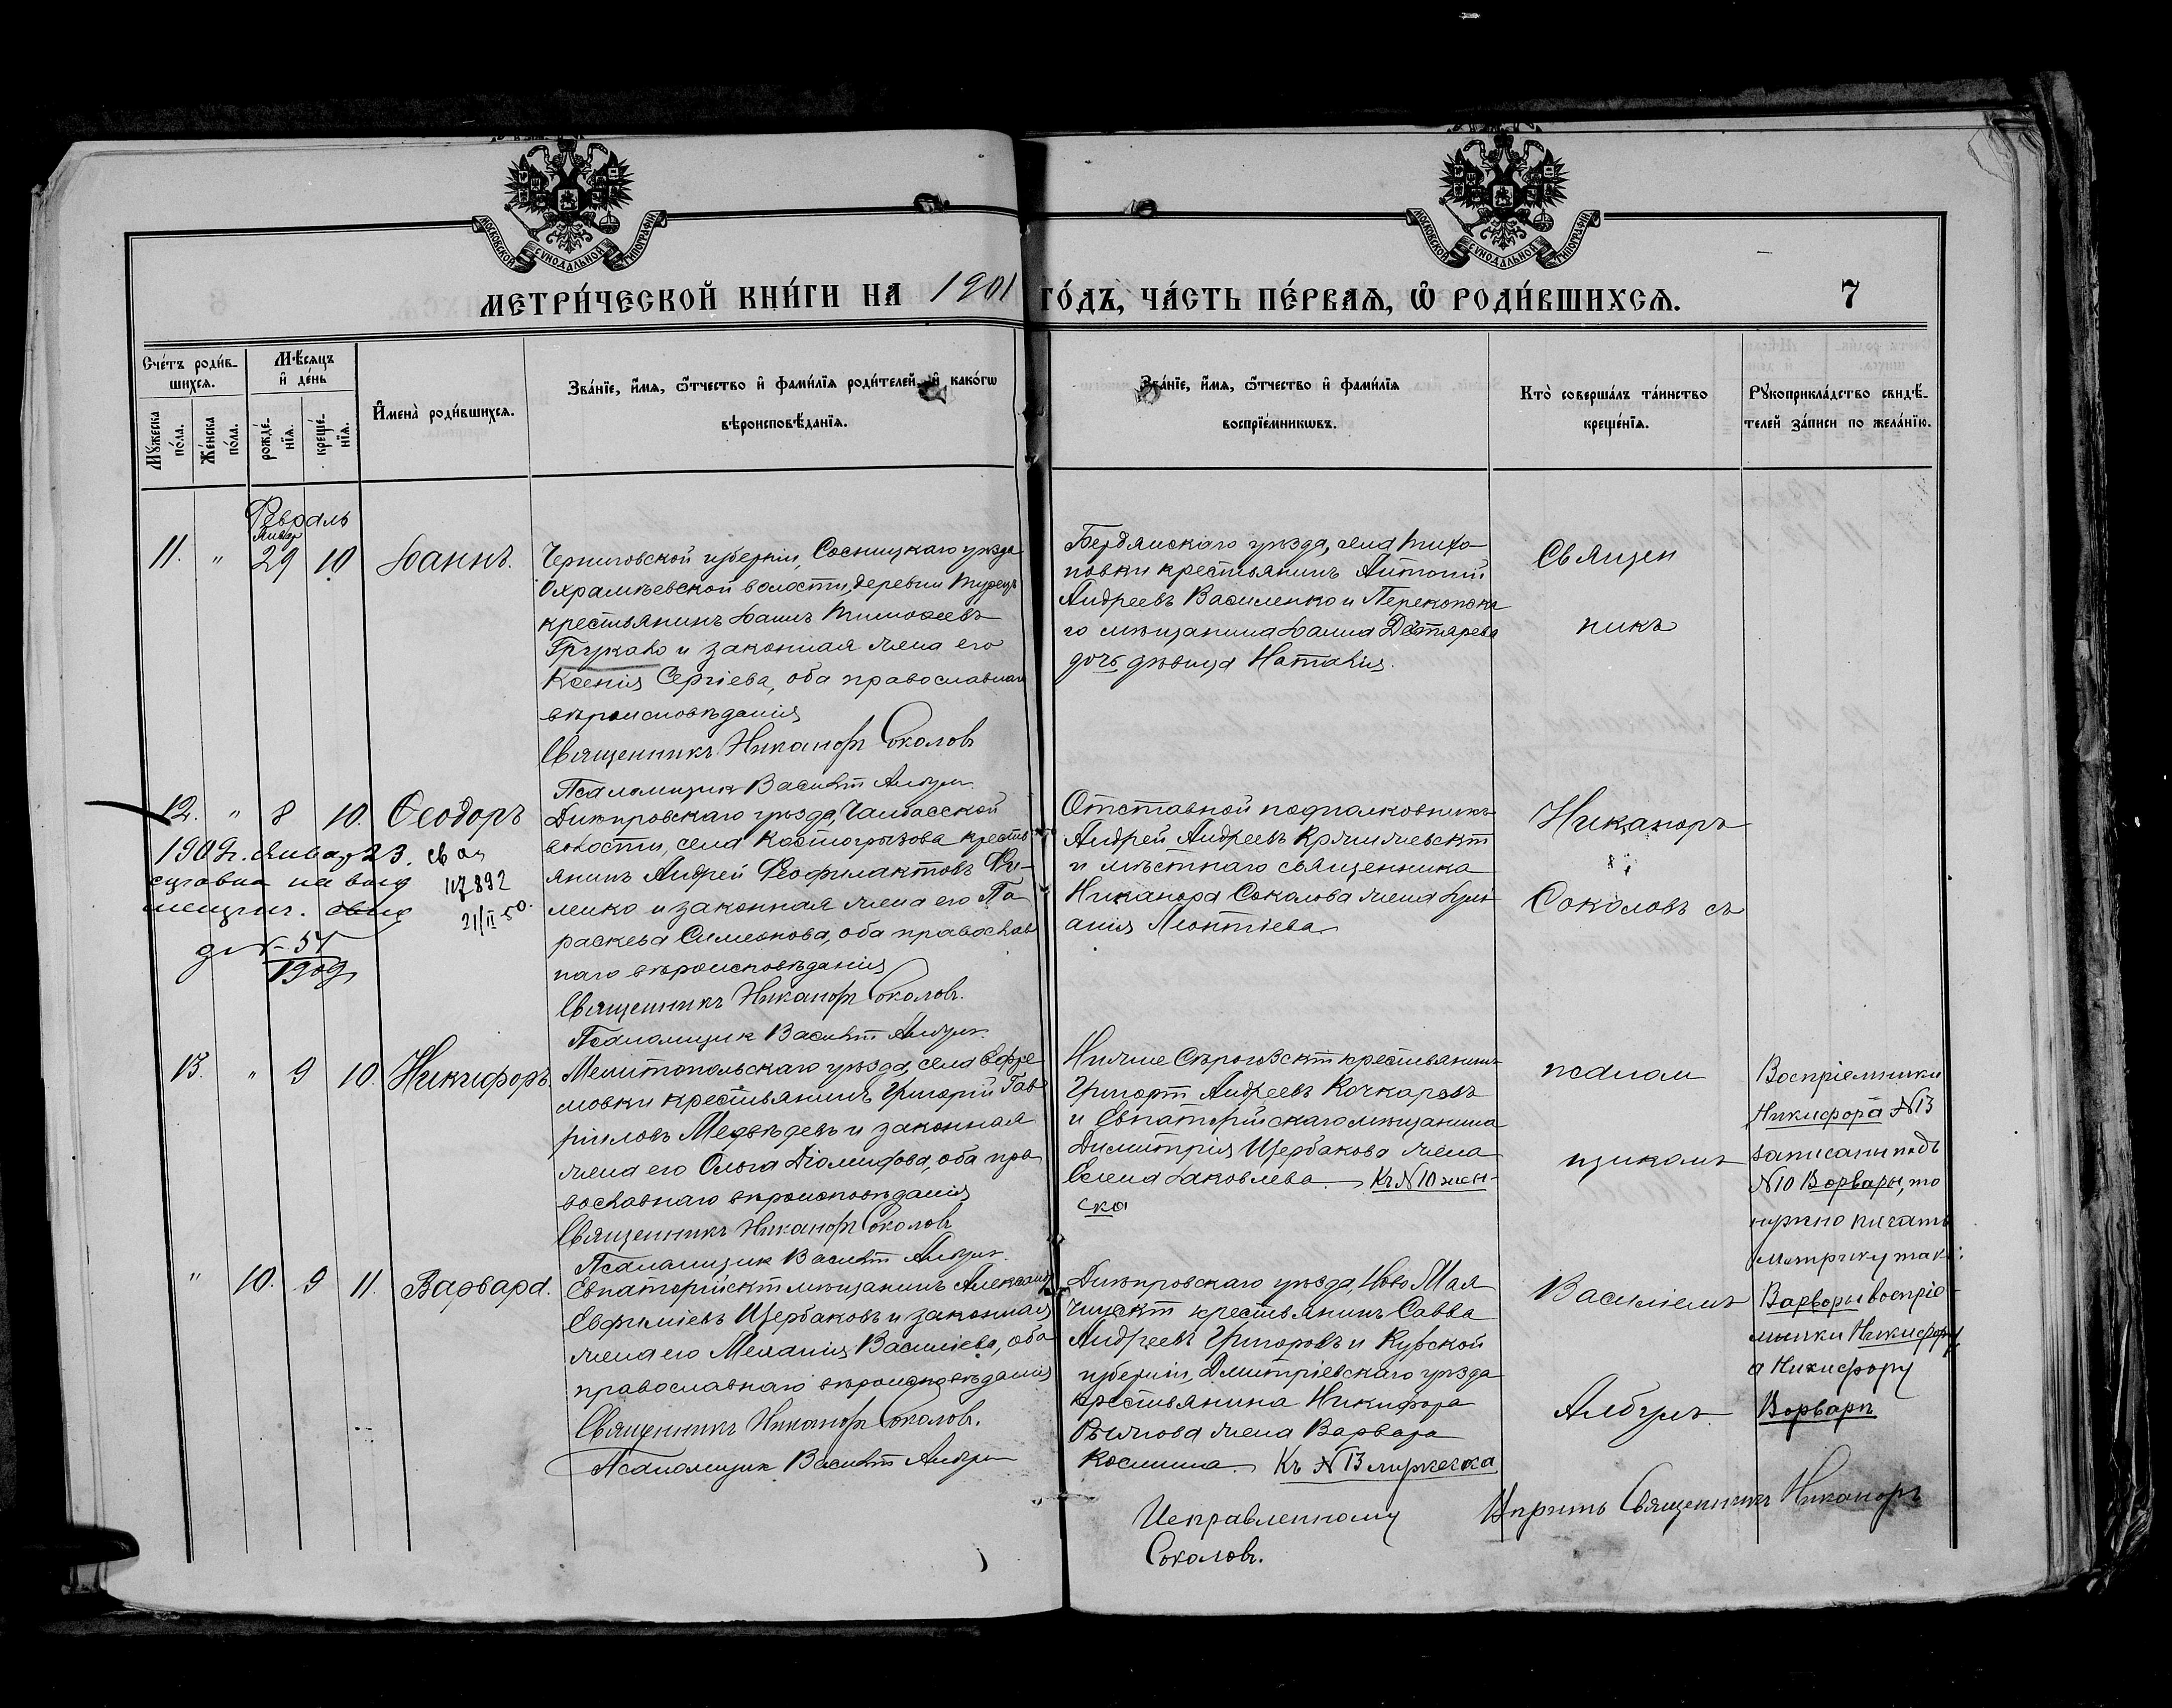 МОСКОВСКОЙ СУНОДАЛЬНОЙ ТИПОГРАФІИ
МОСКОВСКОЙ СУНОДАЛЬНОЙ ТИПОГРАФІИ
МЕТРИ́ЧЕСКОЙ КНИ́ГИ НА 1901 ГО́ДЪ, ЧА́СТЬ ПЕ́РВАЯ, Ѡ҆ РОДИ́ВШИХСЯ.
7
Сче́тъ роди́в-
шихся.
Мѣ́сяцъ
и҆ де́нь
Мꙋ́жеска
по́ла.
Же́нска
по́ла.
рожде́-
нїя.
креще́-
нїя.
И҆мена̀ роди́вшихся.
Зва́нїе, и҆́мя, ѻ҆́тчество и҆ фами́лїя роди́телей, и҆ како́гѡ
вѣроисповѣ́данїя.
Зва́нїе, и҆́мя, ѻ҆́тчество и҆ фами́лїя
воспрїе́мникѡвъ.
Кто̀ соверша́лъ та́инство
креще́нїя.
Рꙋкоприкла́дство свидѣ́-
телей за́писи по жела́нїю.
Февраль
Январ
11. " 29 10 Іоаннъ.
Черниговской губерніи, Сосницкаго уѣзда
Охрамѣевской волости, деревни Турецъ
крестьянинъ Іоаннъ Тимоѳеевъ
и законная жена его
Ксенія Сергіева, оба православнаго
вѣроисповѣданія
Священникъ Никаноръ Соколовъ
Псаломщикъ Василій Албулъ
Бердянскаго уѣзда, села Тихо-
новки крестьянинъ Антоній
Андреевъ Василенко и Перекопска
го мѣщанина Іоанна Дегтярева
дочь дѣвица Наталія.
Священ
никъ
12. " 8 10. Ѳеодоръ
1909г. Январ 23.
на
117892
21/II-50.
№ 51
1909
Днѣпровскаго уѣзда, Чалбасской
волости, села Костогрызова кресть
янинъ Андрей Ѳеофилактовъ
и законная жена его Па
раскева Симеонова, оба православ
наго вѣроисповѣданія
Священникъ Никаноръ Соколовъ.
Псаломщикъ Василій Албулъ.
Отставной подполковникъ
Андрей Андреевъ
и мѣстнаго священника
Никанора Соколова жена
Леонтіева
Никаноръ
Соколовъ съ
13. " 9 10. Никифоръ.
Мелитопольскаго уѣзда, села Ефре
мовки крестьянинъ Григорій Гав
рииловъ Медвѣдевъ и законная
жена его Ольга Діомидова, оба пра
вославнаго вѣроисповѣданія
Священникъ Никаноръ Соколовъ
Псаломщикъ Василій Албулъ.
Нижне Сѣрогозскій крестьянинъ
Григорій Андреевъ Кочкаровъ
и Евпаторійскаго мѣщанина
Димитрія Щербакова жена
Елена Іаковлева. Къ №10 жен-
ска
псалом
щикомъ
Воспріемники
Никифора №13
записаны подъ
№10 Варвары, то
нужно писать
метрику такъ:
" 10. 9 11. Варвара.
Евпаторійскій мѣщанинъ Александръ
Евфиміевъ Щербаковъ и законная
жена его Меланія Василіева, оба
православнаго вѣроисповѣданія
Священникъ Никаноръ Соколовъ.
Псаломщикъ Василій Албулъ
Днѣпровскаго уѣзда, Ново Мая
чицкій крестьянинъ Савва
Андреевъ Григоровъ и Курской
губерніи, Дмитріевскаго уѣзда
крестьянина Никифора
жена Варвара
Космина. Къ №13 мужеска
Василіемъ
Албулъ.
Варвары воспріе-
мники Никифору
а Никифору
Варвары
Исправленному вѣрить Священникъ Никаноръ
Соколовъ.